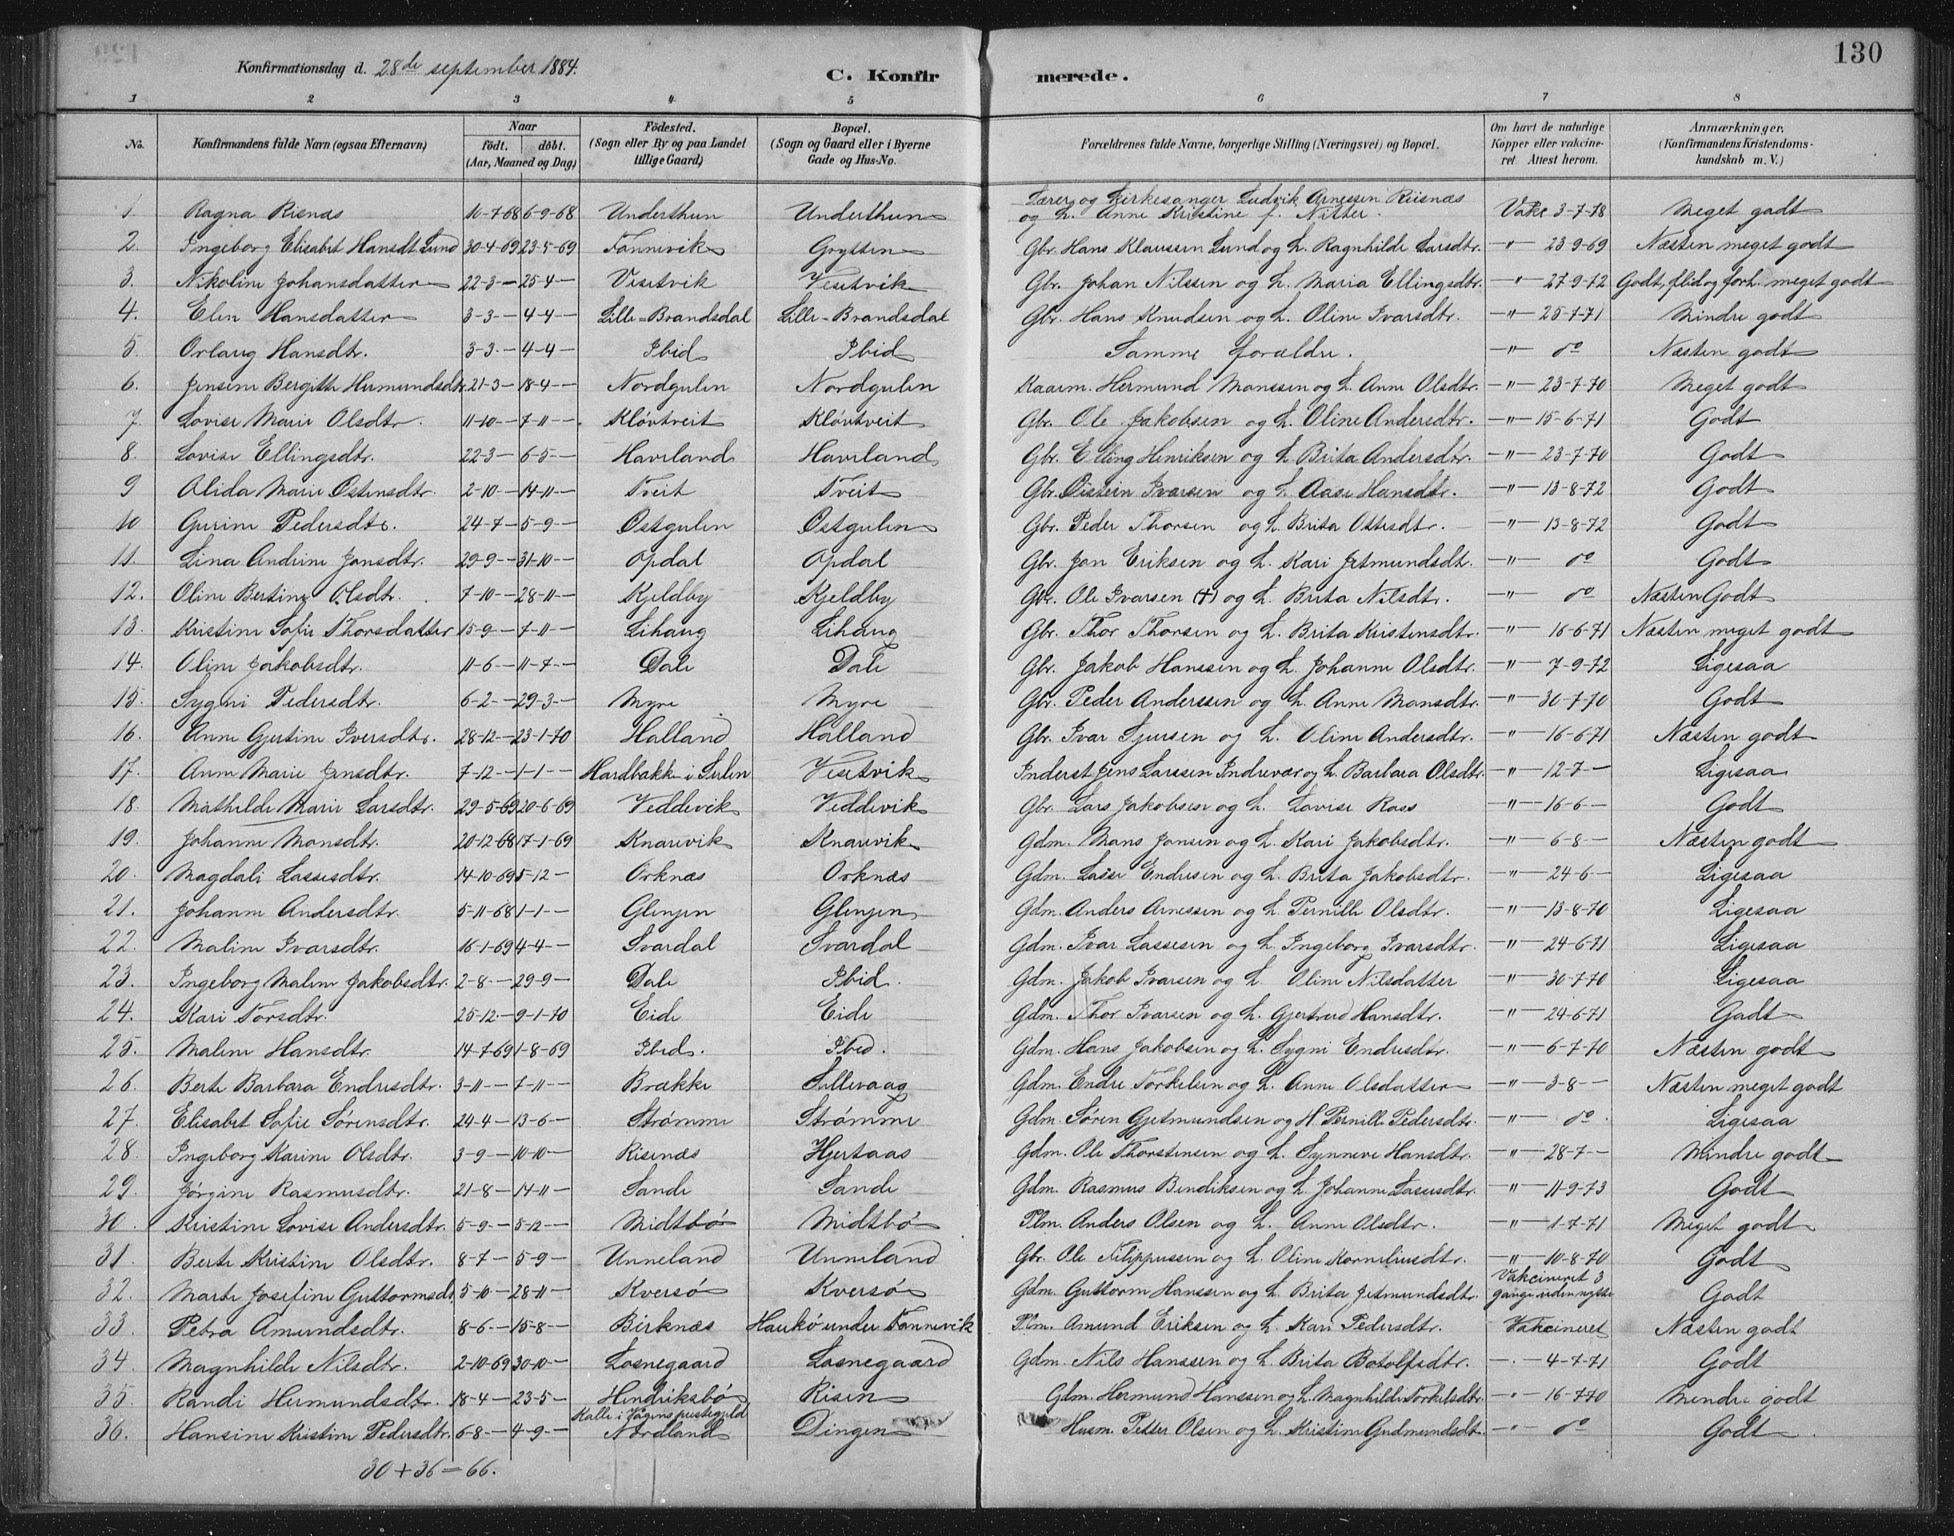 130
Konfirmationsdag d. 28de september 1884.
C. Konfirmerede.
1 2 3 4 5 6 7 8
No. Konfirmandens fulde Navn (ogsaa Efternavn) Naar födt. döbt. (Aar, Maaned og Dag) Födested. (Sogn eller By og paa Landet tillige Gaard) Bopæl. (Sogn og Gaard eller i Byerne Gade og Hus-No. Forældrenes fulde Navne, borgerlige Stilling (Næringsvei) og Bopæl. Om havt de naturlige Kopper eller vakcineret Attest herom. Anmærkninger. (Konfirmandens Kristendomskundskab m. V.)
1. Ragna Risnæs 10-7-68 6-9-68 Underthun Underthun Lærer og Kirkesanger Ludvik Arnessen Riisnæs og h. Anne Kristine f. Nitter. Vakc 3-7-78 Meget godt
2. Ingeborg Elisabet Hansdt. Lund 30-4-69 23-5-69 Fannevik Grytten Gbr. Hans Klaussen Lund og h. Ragnhilde Larsdtr. —"— 23-9-69 Næsten meget godt
3. Nikoline Johansdatter 22-3— 25-4— Visetvik Visetvik Gbr. Johan Nilssen og h. Maria Ellingsdtr. —"— 27-9-72 Godt, flid og forh. meget godt
4. Elen Hansdatter 3-3— 4-4— Lille-Brandsdal Lille-Brandsdal Gbr. Hans Knudsen og h. Oline Ivarsdtr. —"— 25-7-71 Mindre godt
5. Orlaug Hansdtr. 3-3.— 4-4— Ibid Ibid Samme forældre. —"— do Næsten godt
6. Jensine Bergitte Hermundsdtr. 21-3— 18-4— Nordgulen Nordgulen Kaarm. Hermund Monssen og h. Anne Olsdtr. —"— 23-7-70 Meget godt
7. Lovise Marie Olsdtr. 11-10— 7-11—. Klövtveit Klövtveit Gbr. Ole Jakobsen og h. Oline Andersdtr. —"— 15-6-71 Godt
8. Lovise Ellingsdtr. 22-3— 6-5— Haveland Haveland Gbr. Elling Henriksen og h. Brita Andersdtr. —"— 23-7-70 Godt
9 Alida Marie Østensdtr. 2-10— 14-11— Tveit Tveit Gbr. Øistein Ivarsen og h. Aase Hansdtr. —"— 13-8-72 Godt
10 Gurine Pedersdtr. 24-7— 5-9— Østgulen Østgulen Gbr. Peder Thorsen og h. Brita Ottesdtr. —"— 13-8-72 Godt
11. Lina Andrine Jonsdtr. 29-9— 31-10— Opdal Opdal Gbr. Jon Eriksen og h. Kari Jetmundsdt. —"— do Godt
12. Oline Bertine Olsdtr. 7-10— 28-11— Kjeldby Kjeldby Gbr. Ole Ivarsen (†) og h. Brita Nilsdtr. —"— do Næsten Godt
13. Kristine Sofie Thorsdatter 15-9— 7-11— Lihaug Lihaug Gbr. Thor Thorsen og h. Brita Kristensdtr. —"— 16-6-71 Næsten meget godt
14. Oline Jakobsdtr. 11-6— 11-7— Dale Dale Gbr. Jakob Hanssen og h. Johanne Olsdtr. —"— 7-9-72 Ligesaa
15. Sygni Pedersdtr. 6-2— 29-3— Myre Myre Gbr. Peder Anderssen og h. Anne Monsdtr. —"— 30-7-70 Godt
16. Anne Gjertine Iversdtr. 28-12— 23-1-70 Halland Halland Gbr. Ivar Sjursen og h. Oline Andersdtr. —"— 16-6-71 Næsten godt
17. Anne Marie Jensdtr. 7-12— 1-1— Hardbakke i Sulen Visetvik Inderst Jens Larssen Indrevær og h. Barbara Olsdtr. —"— 12-7— Ligesaa
18. Mathilde Marie Larsdtr. 29-5-69 20-6-69 Veddevik Veddevik Gbr. Lars Jakobsen og h. Lovise Rass —"— 16-6— Godt
19. Johanne Monsdtr. 20-12-68 17-1-69 Knarvik Knarvik Gdm. Mons Jonsen og h. Kari Jakobsdtr. —"— 6-8— Næsten godt
20. Magdali Lassesdtr. 14-10-69 5-12— Orknæs Orknæs Gdm. Lasse Endresen og h. Brita Jakobsdtr. —"— 24-6— Ligesaa
21. Johanne Andersdtr. 5-11-68 1-1— Glenjen Glenjen Gdm. Anders Arnessen og h. Pernille Olsdtr. —"— 13-8-70 Ligesaa
22. Maline Ivarsdtr. 16-1-69 4-4— Svardal Svardal Gdm. Ivar Lassesen og h. Ingeborg Ivarsdtr. —"— 24-6-71 Ligesaa
23. Ingeborg Maline Jakobsdtr. 2-8— 29-9— Dale Ibid. Gdm. Jakob Ivarsen og h. Oline Nilsdatter —"— 30-7-70 Ligesaa
24. Kari Torsdtr. 25-12.— 9-1-70 Eide Eide Gdm. Thor Ivarsen og h. Gjertrud Hansdtr. —"— 24-6-71 Godt
25. Maline Hansdtr. 14-7-69 1-8-69 Ibid. Ibid. Gdm. Hans Jakobsen og h. Sygni Endresdtr. —"— 6-7-70 Næsten godt
26. Berte Barbara Endresdtr. 3-11— 7-11— Brække Lillevaag Gdm. Endre Torkelsen og h. Anne Olsdatter —"— 3-8— Næsten meget godt
27. Elisabet Sofie Sörensdtr. 24-4— 13-6— Strømme Strømme Gdm. Søren Gjetmundsen og H. Pernille Pedersdtr. —"— do. Ligesaa
28. Ingeborg Karine Olsdtr. 3-9— 10-10— Risenæs Hjertaas Gdm. Ole Thorstensen og h. Synneve Hansdtr. —"— 28-7— Mindre godt
29. Jörgine Rasmusdtr. 21-8— 14-11— Sande Sande Gdm. Rasmus Bendiksen og h. Johanne Lassesdtr. —"— 11-9-73 Godt
30. Kristine Lovise Andersdtr. 5-9— 5-12— Midtbö Midtbö Plm. Anders Olsen og h. Anne Olsdtr. —"— 1-7-71 Meget godt
31. Berte Kristine Olsdtr. 8-7— 5-9— Unneland Unneland Gbr. Ole Filippussen og h. Oline Korneliusdtr. —"— 10-8-70 Godt
32. Marte Josefine Guttormsdt. 5-10— 28-11— Kversö Kversö Gdm. Guttorm Hanssen og h. Brita Jetmundsdtr. Vakcineret 3 gange uden nytte Godt
33. Petra Amundsdtr. 8-6— 15-8— Birknæs Haukö under Fannevik Plm. Amund Eriksen og h. Kari Pedersdtr. Vakcineret Næsten godt
34. Magnhilde Nilsdtr. 2-10-69 30-10— Losnegaard Losnegaard Gdm. Nils Hanssen og h. Brita Botolfsdtr. —.— 4-7-71 Godt
35. Randi Hermundsdtr. 18-4— 23-5— Hendriksbø Risen Gdm. Hermund Hanssen og h. Magnhilde Torkelsdtr. —"— 16-7-70 Mindre godt
36. Hansine Kristine Pedersdtr. 6-8— 4-9— Kalle i Vågens prestegjeld Nordland Dingen Husm. Petter Olsen og h. Kristine Gudmundsdt. —"— do Godt.
30 + 36 = 66.